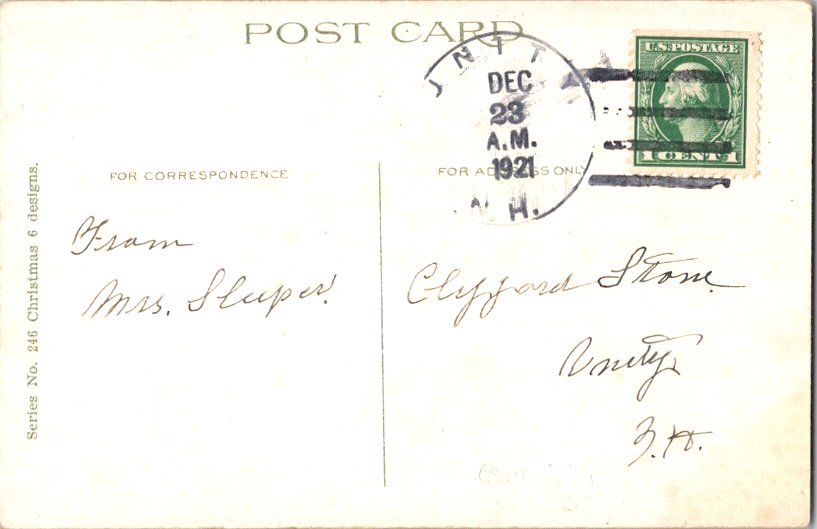 POST CARD
UNITY
DEC
23
A.M.
1921
N.H.
U.S. POSTAGE
1 CENT 1
FOR CORRESPONDENCE
FOR ADDRESS ONLY
From
Mrs. Sleeper.
Clifford Stone
Unity
N.H.
Series No. 246 Christmas 6 designs.